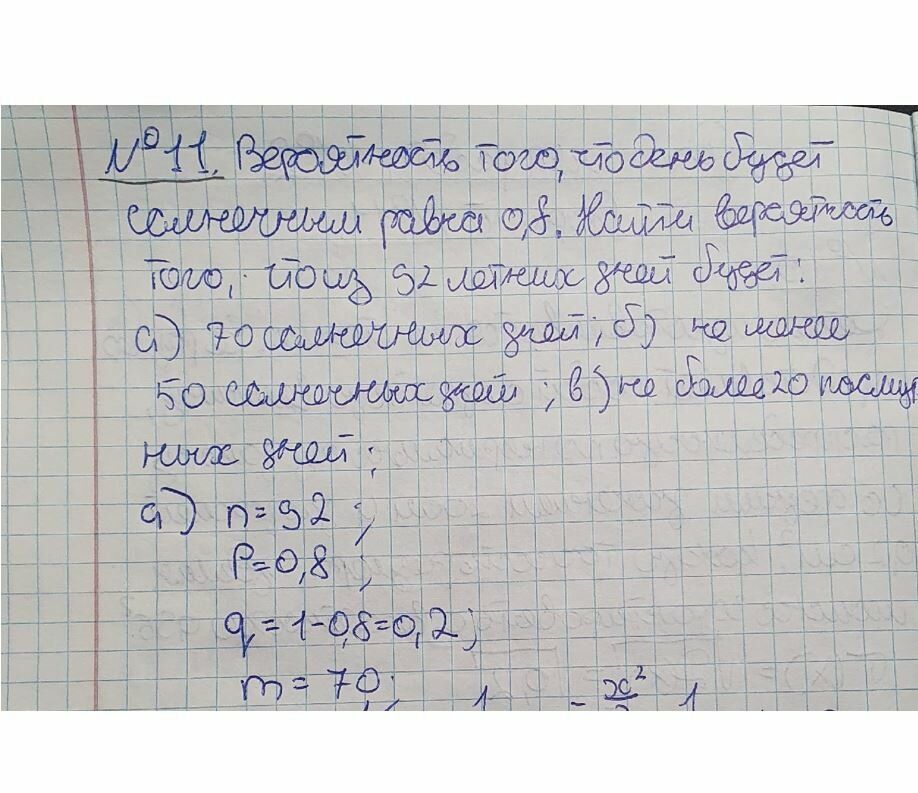 №11. Вероятность того, что день будет
солнечным равна 0,8. Найти вероятность
того, что из 92 летних дней будет:
а) 70 солнечных дней; б) не менее
50 солнечных дней; в) не более 20 пасмур
ных дней;
а) n=92;
P=0,8;
q=1-0,8=0,2;
m=70;